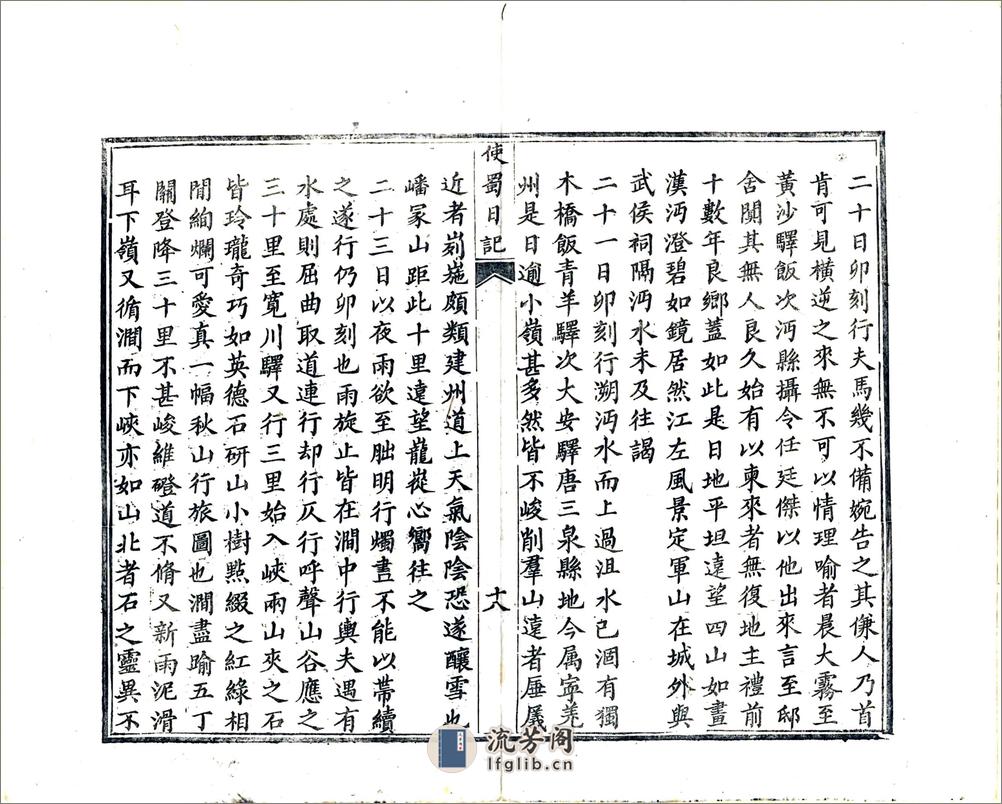 二十日卯刻行夫馬幾不備婉告之其傔人乃首
肯可見橫逆之來無不可以情理喻者晨大霧至
黃沙驛飯次沔縣攝令任廷傑以他出來言至邸
舍闃其無人良久始有以柬來者無復地主禮前
十數年良鄉蓋如此是日地平坦遠望四山如畫
漢沔澄碧如鏡居然江左風景定軍山在城外與
武侯祠隔沔水未及往謁
二十一日卯刻行溯沔水而上過沮水已涸有獨
木橋飯青羊驛次大安驛唐三泉縣地今属寧羌
州是日逾小嶺甚多然皆不峻削羣山遠者㕒㕒
使蜀日記
十八
近者剡崺頗類建州道上天氣陰陰恐遂釀雪也
嶓冢山距此十里遠望龍嵸心嚮往之
二十三日以夜雨欲至朏明行燭晝不能以蔕續
之遂行仍卯刻也雨旋止皆在澗中行輿夫遇有
水處則屈曲取道連行却行仄行呼聲山谷應之
三十里至寬川驛又行三里始入峽兩山夾之石
皆玲瓏奇巧如英德石研山小樹㸃綴之紅綠相
閒絢爛可愛真一幅秋山行旅圖也澗盡踰五丁
關登降三十里不甚峻維磴道不脩又新雨泥滑
耳下嶺又循澗而下峽亦如山北者石之靈異不
流芳阁
lfglib.cn